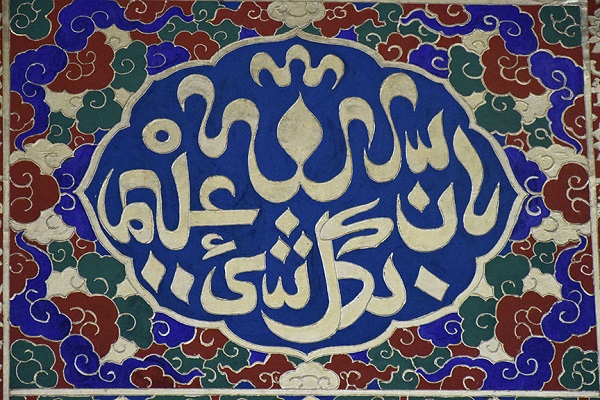 ان الله بكل شئ عليم